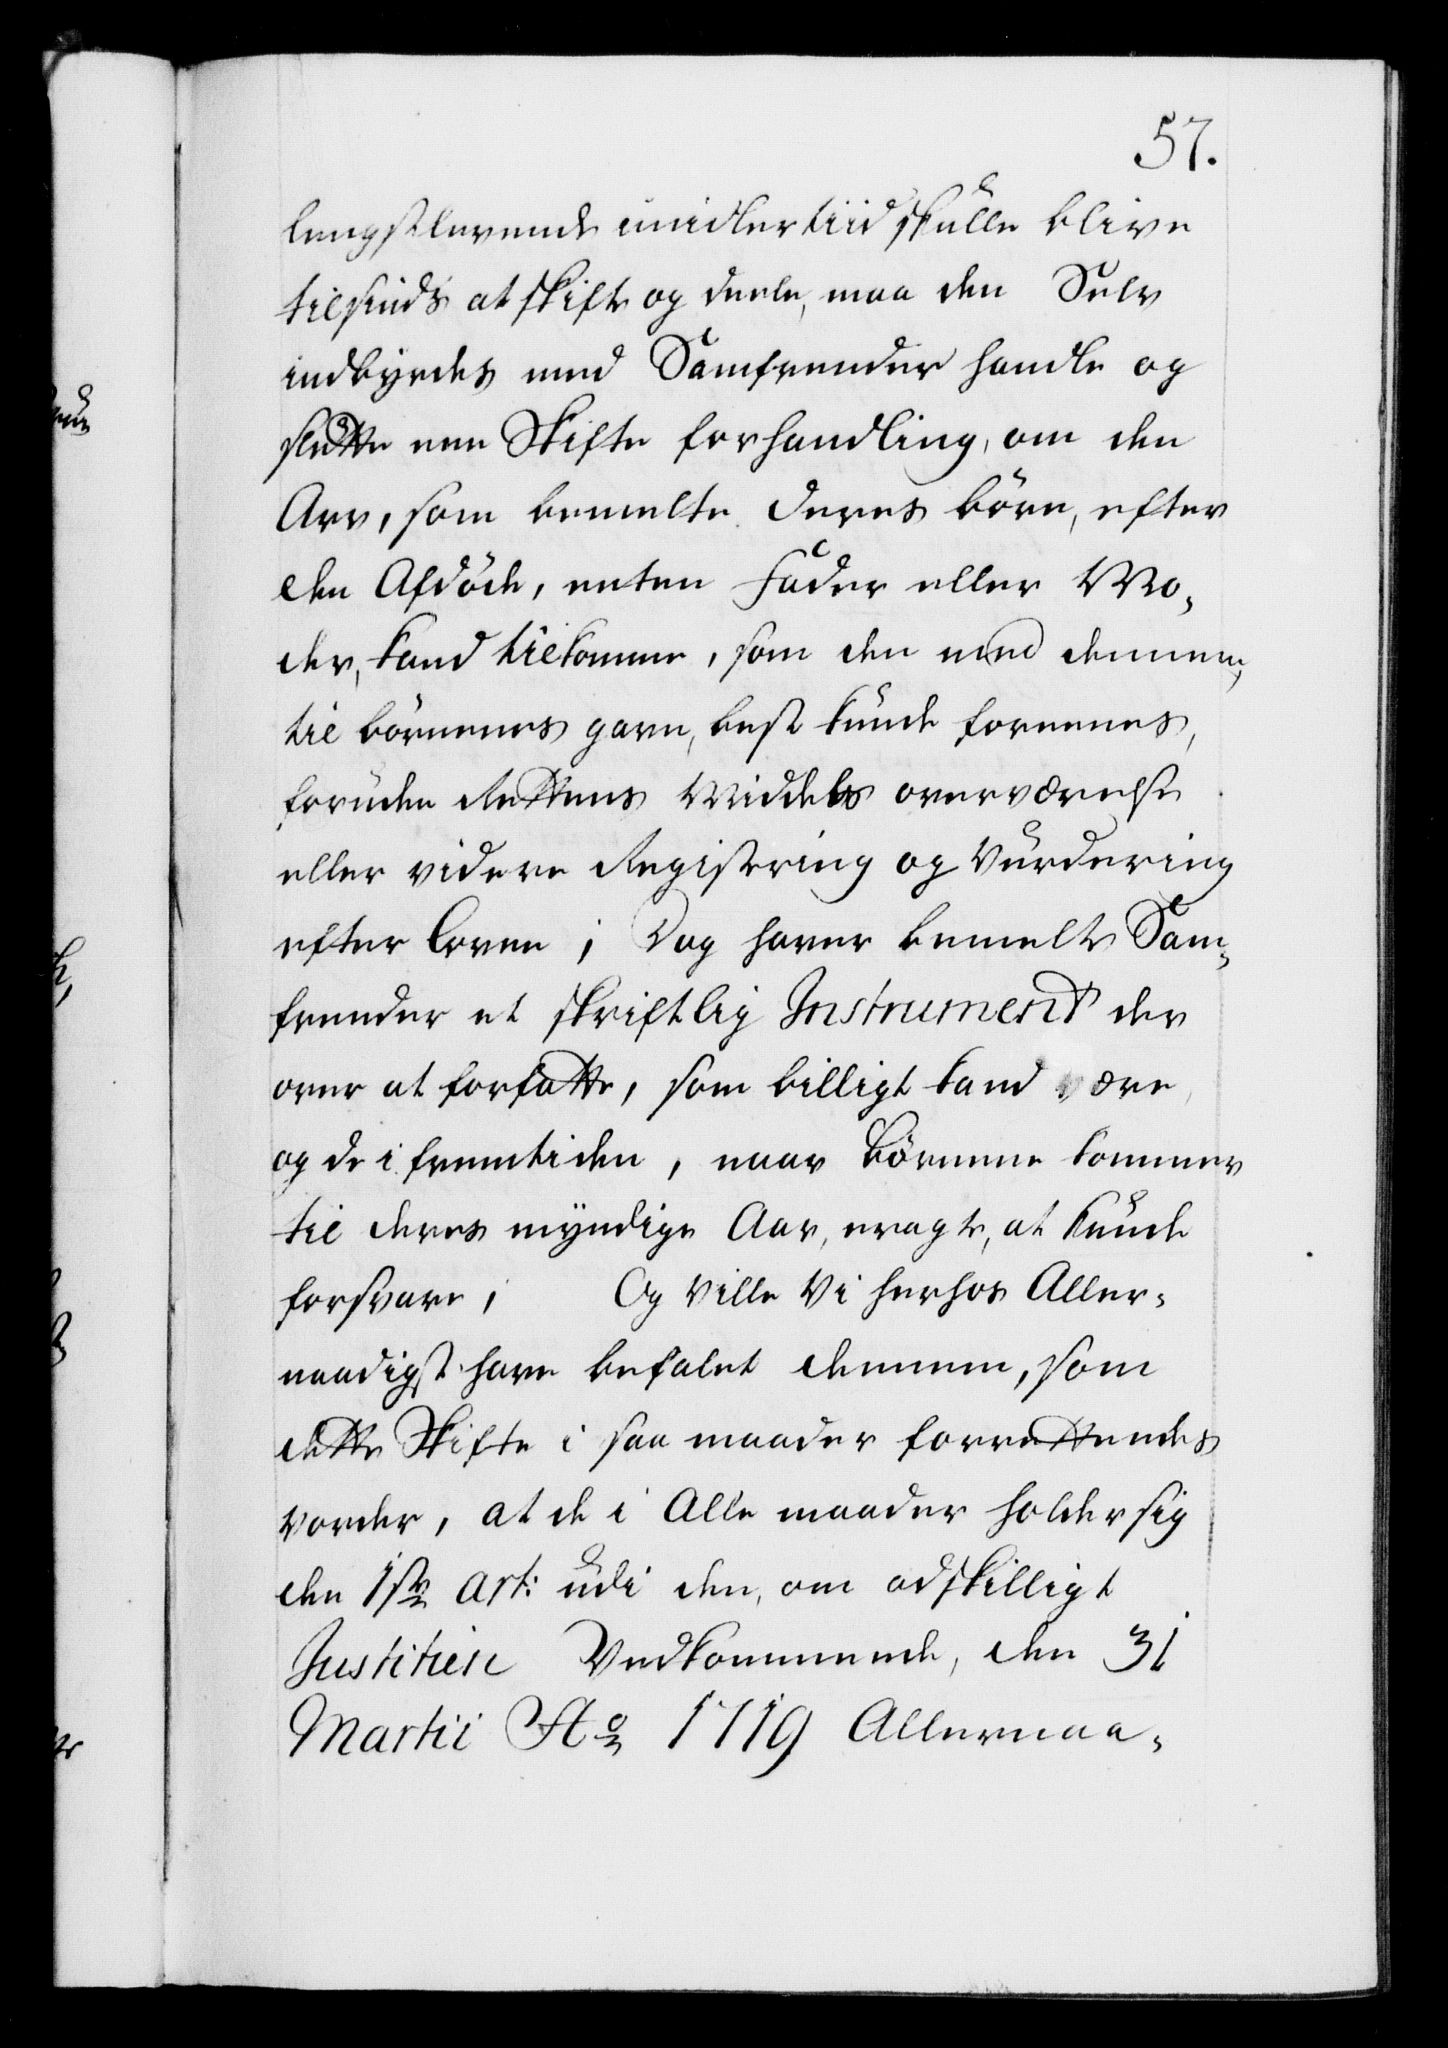 57.
lengstlevende imidlertiid skulle blive
tilsinds at skifte og deele, maa den Selv
indbyrdes med Samfrender handle og
slutte een Skifte forhandling, om den
Arv, som bemelte deres börn, efter
den Afdöde, enten Fader eller Mo-
der, kand tilkomme, som den med dennem,
til börnenes gavn, best kunde foreenes,
foruden Rettens Middels overværelse
eller videre Registering og Vurdering
efter Loven; Dog haver bemelte Sam-
frender et skriftlig Instrument der
over at forfatte, som billigt kand være,
og de i fremtiden, naar Börnene kommer
til deres myndige Aar, eragte, at kunde
forsvare; Og ville Vi herhos Aller-
naadigst have befalet dennem, som
dette Skifte i saa maader forrettendes
vorder, at de i Alle maader holder sig
den 1ste Art: udi den, om adskilligt
Justitien Vedkommende, den 31
Martii Ao 1719 Allernaa-